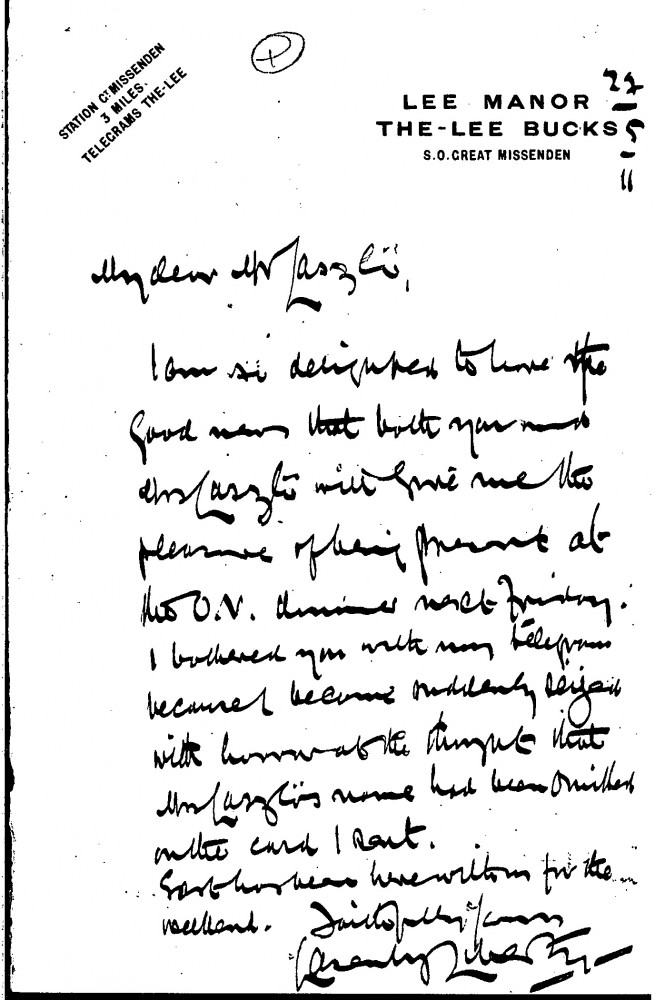 STATION GT MISSENDEN
3 MILES.
TELEGRAMS THE-LEE
LEE MANOR
THE-LEE BUCKS
S.O. GREAT MISSENDEN
5
11
My dear Mr László,
I am so delighted to have the
good news that both you and
Mrs László will give me the
pleasure of being present at
the O.V. dinner next Friday.
I bothered you with my telegram
because I became suddenly seized
with horror at the thought that
Mrs László's name had been omitted
on the card I sent.
has been here with us for the
weekend. Faithfully Yours
Liberty